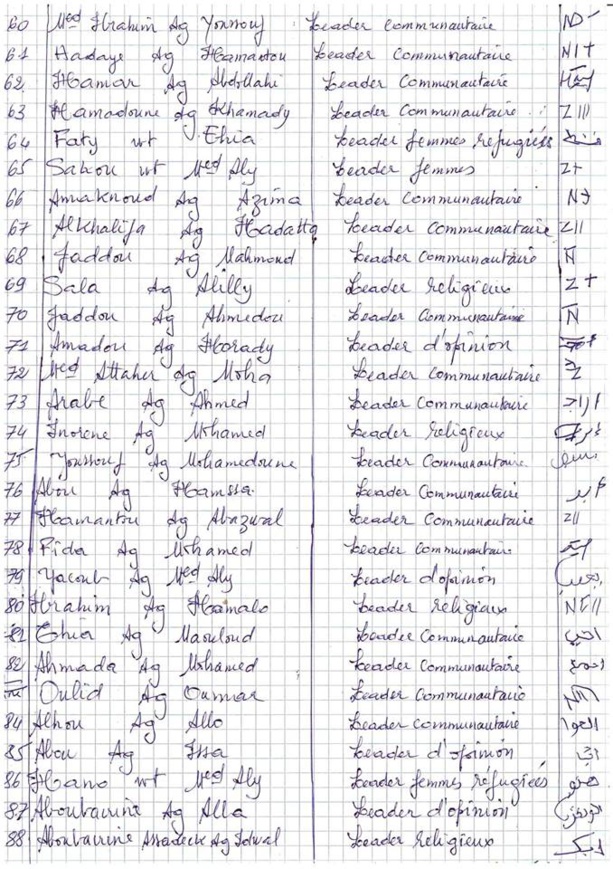 60 Med Ibrahim Ag Youssouf Leader communautaire
61 Hadaye Ag Hamantou Leader Communautaire N|+
62 Hamar Ag Abdyllahi Leader Communautaire
63 Hamadoune Ag Khamady Leader Communautaire Z|||
64 Faty wt Ehia Leader femmes refugiées
65 Sakou wt Med Aly Leader femmes Z+
66 Amaknoud Ag Azima Leader Communautaire
67 Alkhalifa Ag Hadatta Leader Communautaire Z||
68 Jaddou Ag Mahmoud Leader communautaire N
69 Sala Ag Alilly Leader religieux Z+
70 Jaddou Ag Ahmedou Leader Communautaire N
71 Amadou Ag Horady Leader d'opinion
72 Med Attaher Ag Moha Leader Communautaire
73 Arabe Ag Ahmed Leader Communautaire
74 Inorene Ag Mohamed Leader religieux
75 Youssouf Ag Mohamedoune Leader Communautaire
76 Abou Ag Hamssa Leader Communautaire
77 Hamantou Ag Abazwal Leader Communautaire Z||
78 Fida Ag Mohamed Leader communautair
79 Yacoub Ag Med Aly Leader d'opinion
80 Ibrahim Ag Hamalo Leader religieux
81 Ehia Ag Maouloud Leader Communautaire
82 Ahmada Ag Mohamed Leader Communautaire
Oulid Ag Oumar Leader Communautaire
84 Alhou Ag Allo Leader communautaire
85 Abou Ag Issa Leader d'opinion
86 Hano wt Med Aly Leader femmes refugiées
87 Aboubacrine Ag Alla Leader d'opinion
88 Aboubacrine Assadeck Ag Idwal Leader religieux